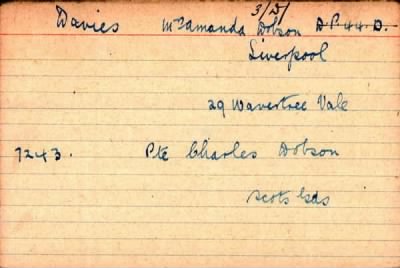 3/D/
Davies Mrs Amanda Dobson D.P. 44 D.
Liverpool
29 Wavertree Vale
7243. Pte Charles Dobson
Scots Gds